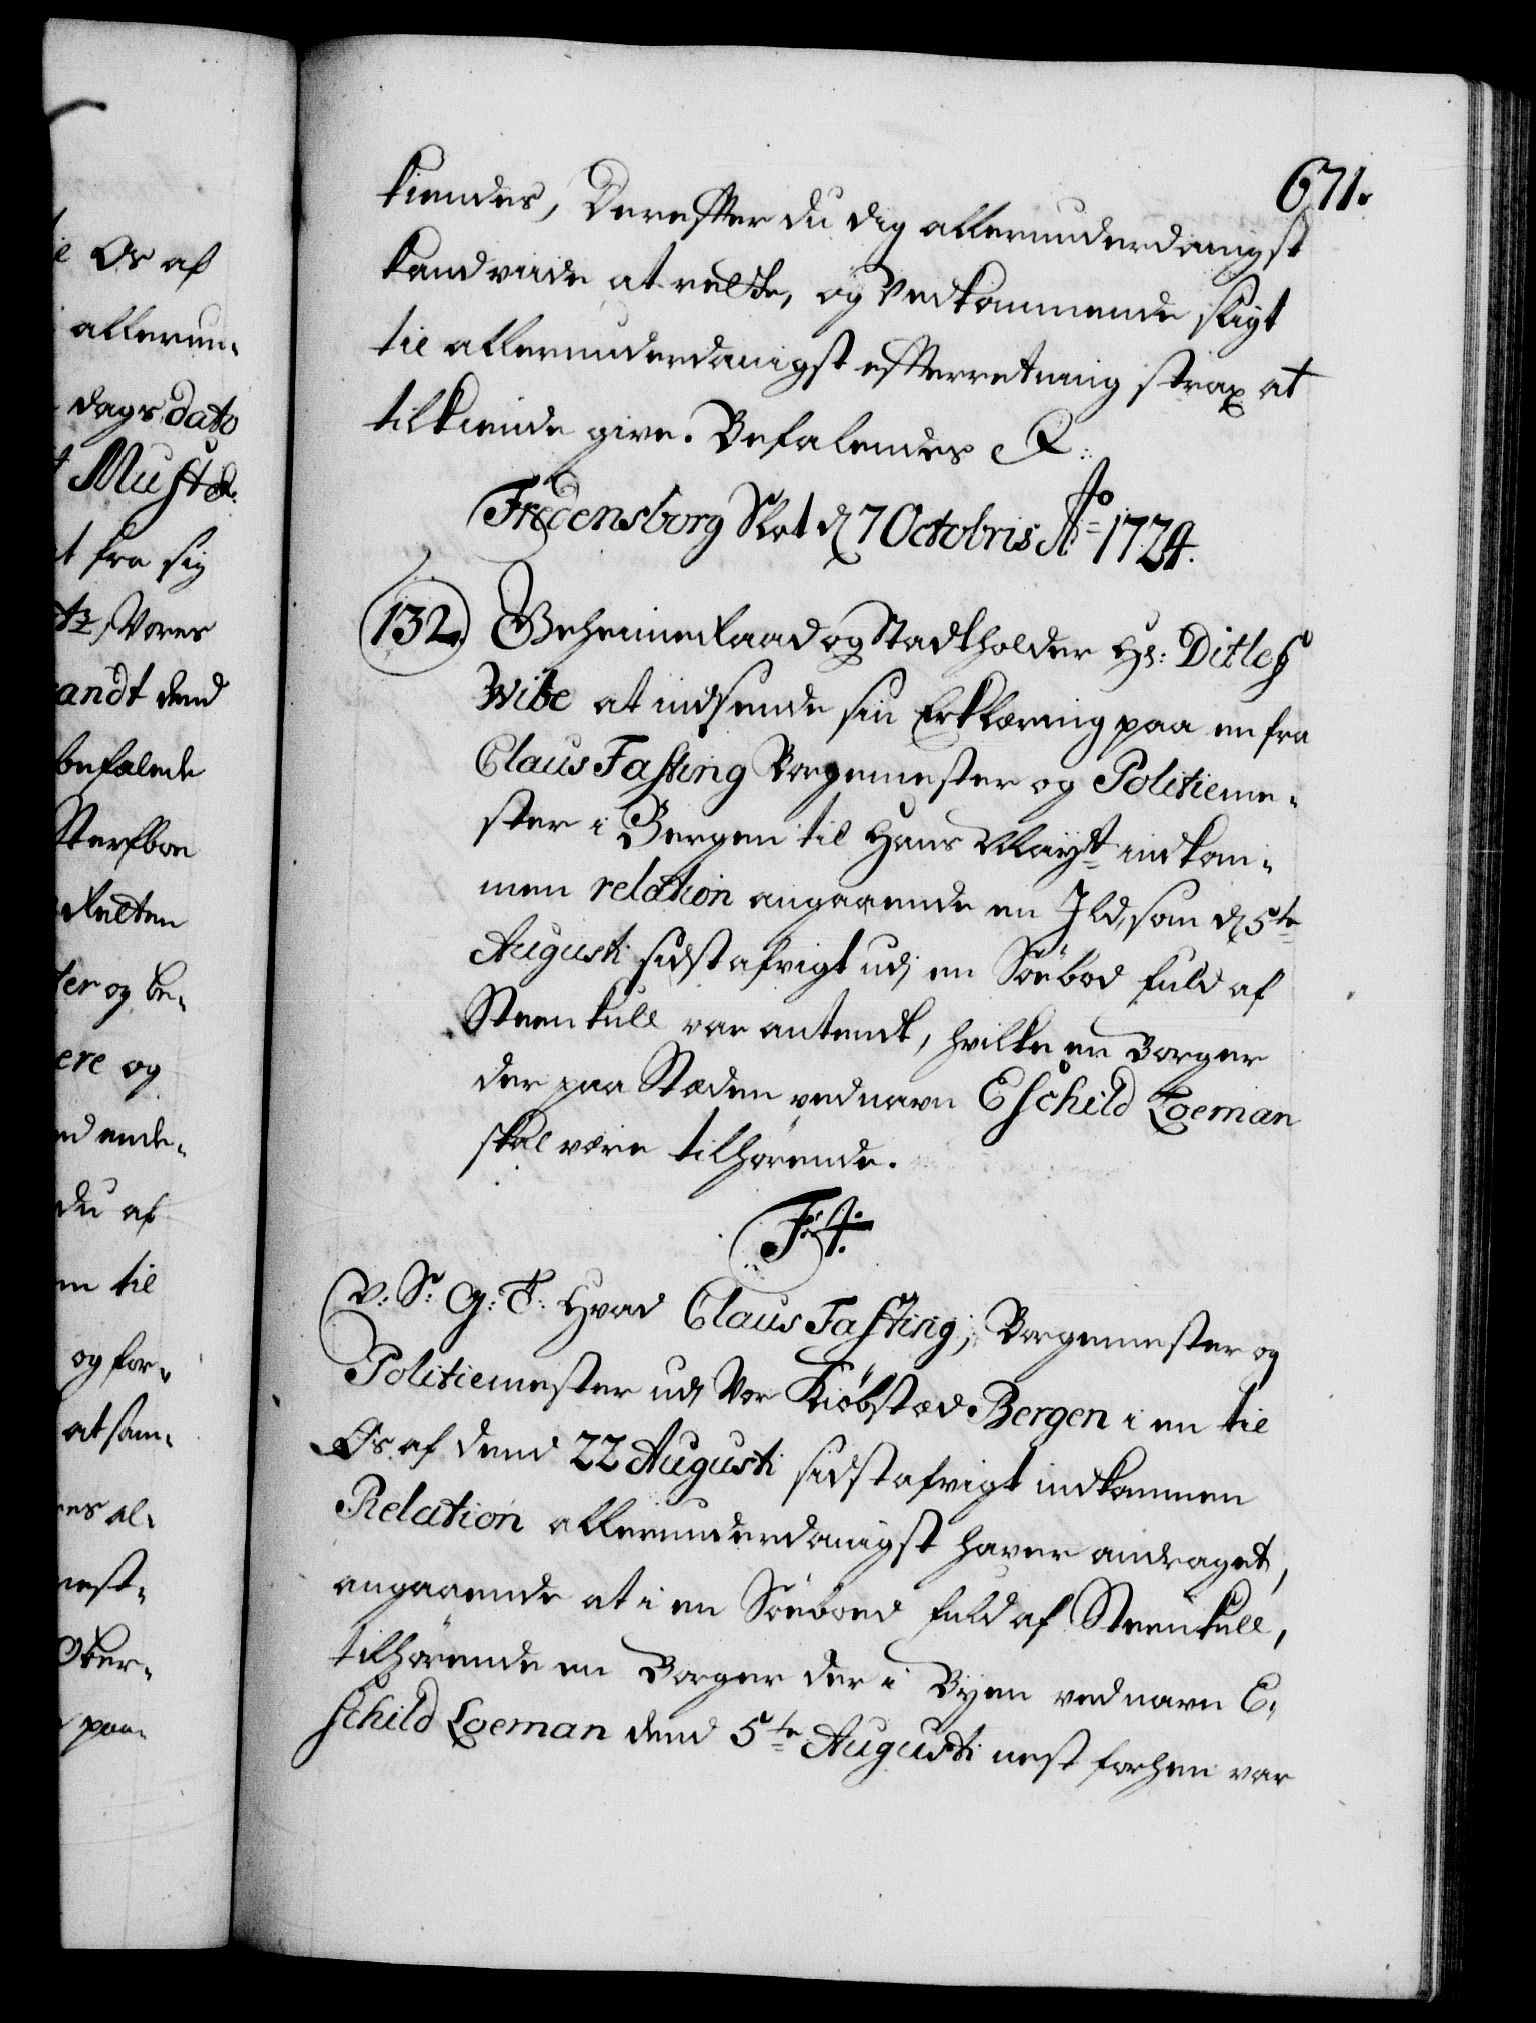 671.
kiendes, Derefter du dig allerunderdanigst
kand vide at rette, og Vedkommende sligt
til allerunderdanigst efterretning strax at
tilkiende give. Befalendes
Fredensborg Slot d 7 Octobris Ao 1724.
132. Geheimeraad og Stadtholder Hr: Ditlef
Wibe at indsende sin Erklæring paa en fra
Claus Fasting Borgemester og Politieme-
ster i Bergen til Hans Mayt indkom-
men relation angaaende en Ild, som d 5te
Augusti sidst afvigt udj en Söebod fuld af
Steenkull var antendt, hvilke en Borger
der paa Stæden ved navn Eschild Loeman
skal være tilhörende.
F: 4.
V: S: G: T: Hvad Claus Fasting, Borgemester og
Politiemester udj Vor Kiöbstæd Bergen i en til
Os af dend 22 Augusti sidst afvigt indkommen
Relation allerunderdanigst haver andraget,
angaaende at i en Söeboed fuld af Steenkull,
tilhörende en Borger der i Byen ved navn E-
schild Loeman dend 5te Augusti nest forhen var
Os af
allerun-
dags dato
fra sig
Vores
andt dend
befalede
Sterfboe
er og be-
ere og
du af
til
og for-
at sam-
es al-
nest-
Ober-
paa-